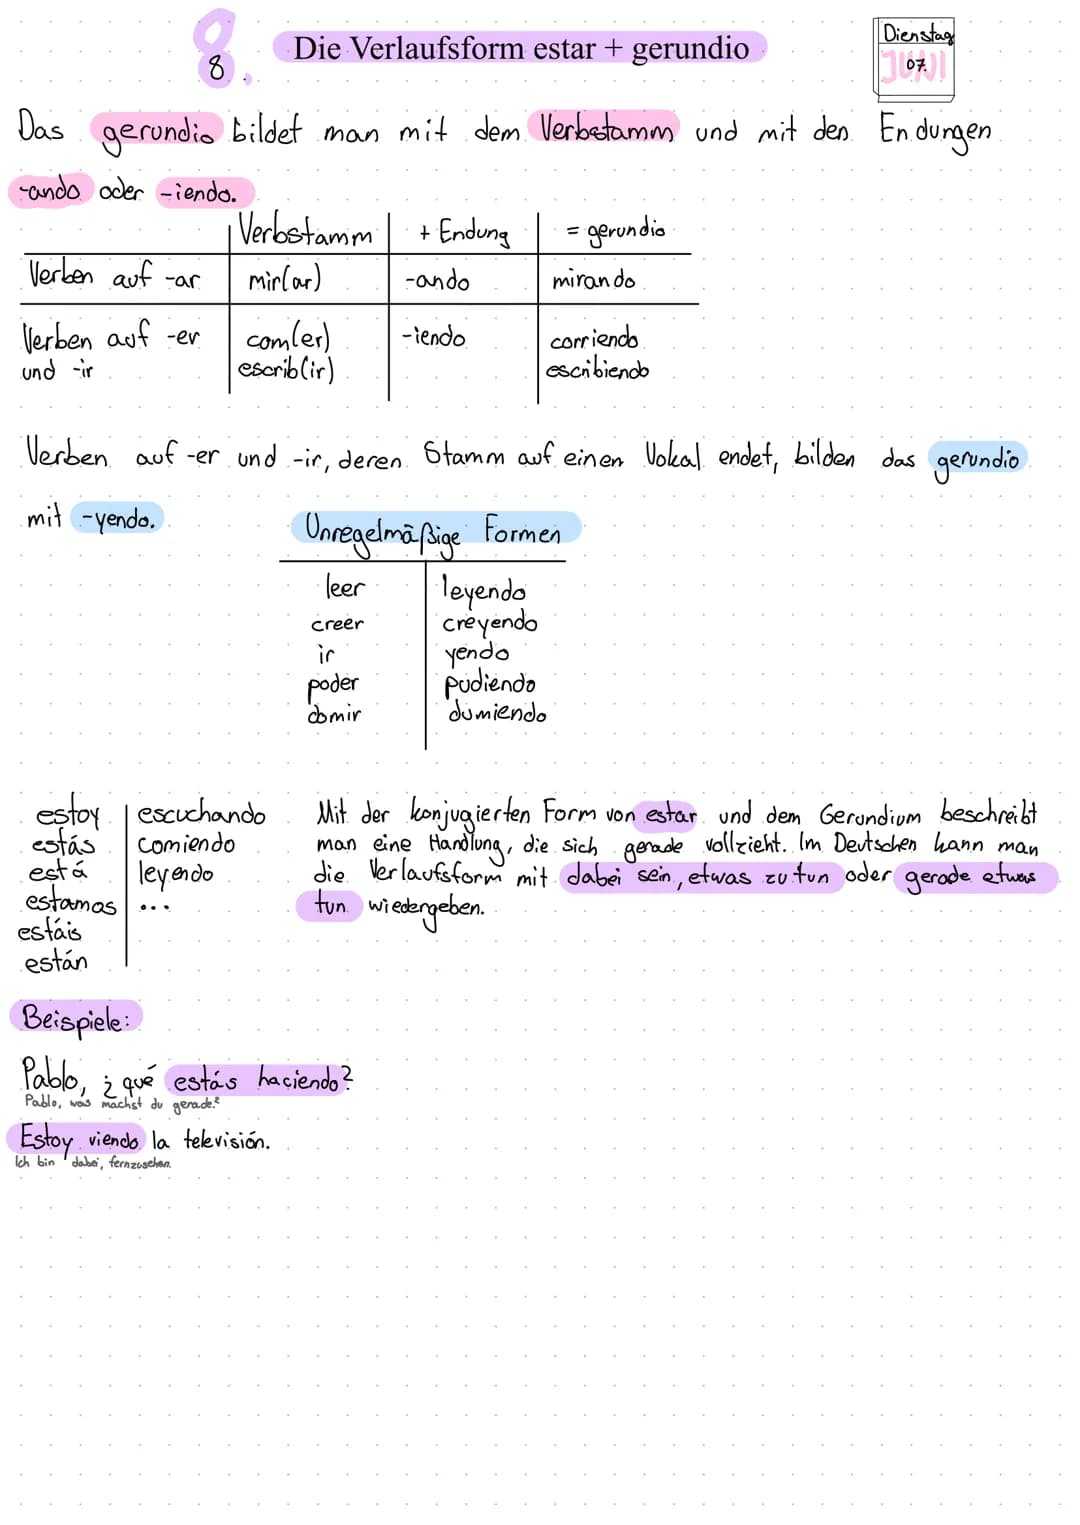 8.
8
Die Verlaufsform estar + gerundio
Dienstag
JUNI
07.
Das gerundio bildet man mit dem Verbstamm und mit den Endungen
-ando oder -iendo.
Verbstamm + Endung = gerundio
Verben auf -ar mir(ar) -ando mirando
Verben auf -er com(er) -iendo corriendo
und -ir escrib(ir) escribiendo
Verben auf -er und -ir, deren Stamm auf einen Vokal endet, bilden das gerundio
mit -yendo.
Unregelmäßige Formen
leer leyendo
creer creyendo
ir yendo
poder pudiendo
domir dumiendo
estoy escuchando
estás comiendo
está leyendo
estamos ...
estáis
están
Mit der konjugierten Form von estar und dem Gerundium beschreibt
man eine Handlung, die sich gerade vollzieht. Im Deutschen kann man
die Verlaufsform mit dabei sein, etwas zu tun oder gerade etwas
tun wiedergeben.
Beispiele:
Pablo, ¿qué estás haciendo?
Pablo, was machst du gerade?
Estoy viendo la televisión.
Ich bin dabei, fernzusehen.